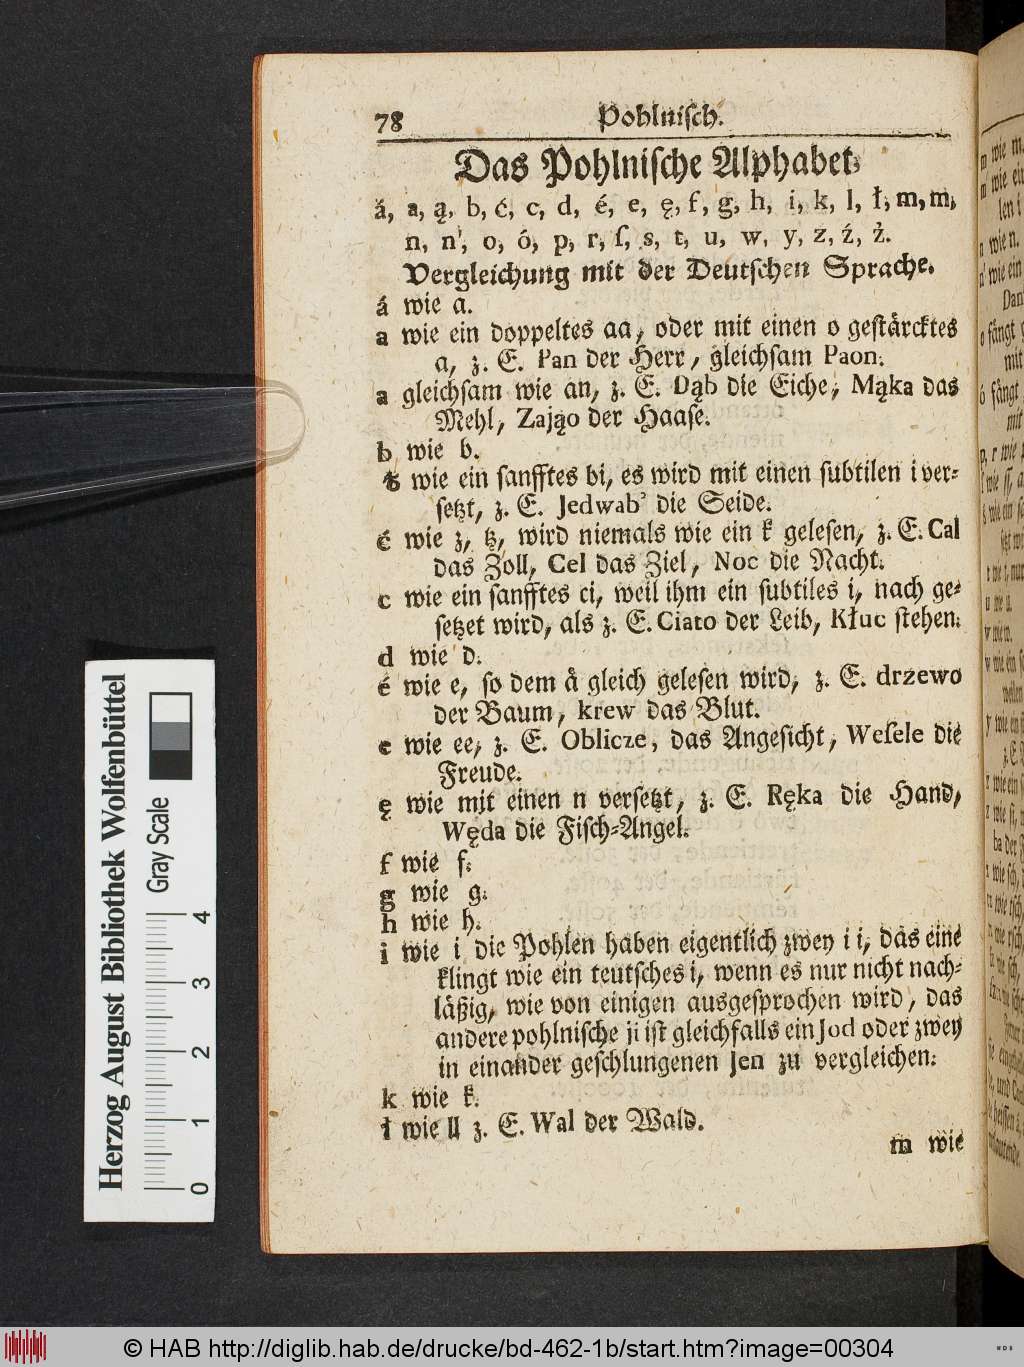 78 Pohlniſch.
Das Pohlniſche Alphabet.
á, a, ą, b, ć, c, d, é, e, ę, f, g, h, i, k, l, ł, m, m,
n, n', o, ó, p, r, ſ, s, t, u, w, y, z, ź, ż.
Vergleichung mit der Deutſchen Sprache.
á wie a.
a wie ein doppeltes aa, oder mit einen o geſtärcktes
a, z. E. Pan der Herr, gleichſam Paon.
a gleichſam wie an, z. E. Dąb die Eiche, Mąka das
Mehl, Zająo der Haaſe.
b wie b.
wie ein ſanfftes bi, es wird mit einen ſubtilen i ver-
ſetzt, z. E. Jedwab' die Seide.
ć wie z, tz, wird niemals wie ein k geleſen, z. E. Cal
das Zoll, Cel das Ziel, Noc die Nacht.
c wie ein ſanfftes ci, weil ihm ein ſubtiles i, nach ge-
ſetzet wird, als z. E. Ciato der Leib, Kłuc ſtehen.
d wie d.
é wie e, ſo dem å gleich geleſen wird, z. E. drzewo
der Baum, krew das Blut.
e wie ee, z. E. Oblicze, das Angeſicht, Weſele die
Freude.
ę wie mit einen n verſetzt, z. E. Ręka die Hand,
Węda die Fiſch-Angel.
f wie f.
g wie g.
h wie h.
i wie i die Pohlen haben eigentlich zwey i i, das eine
klingt wie ein teutſches i, wenn es nur nicht nach-
läßig, wie von einigen ausgeſprochen wird, das
andere pohlniſche ji iſt gleichfalls ein Jod oder zwey
in einander geſchlungenen Jen zu vergleichen.
k wie k.
ł wie ll z. E. Wal der Wald.
m wie
Herzog August Bibliothek Wolfenbüttel
Gray Scale
0 1 2 3 4
© HAB http://diglib.hab.de/drucke/bd-462-1b/start.htm?image=00304